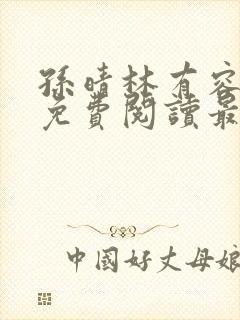 孫晴林有容
免費閱讀最
中國好丈母娘